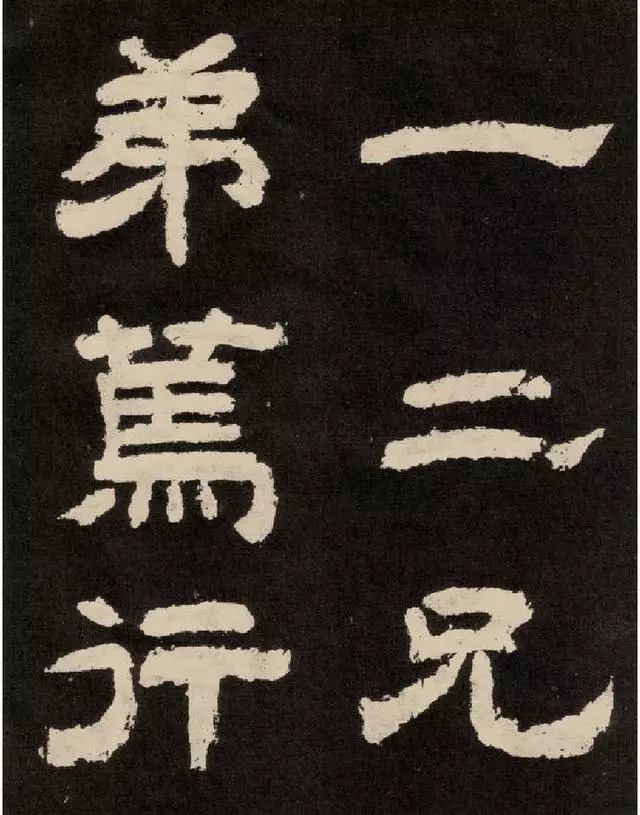 一二兄
弟篤行